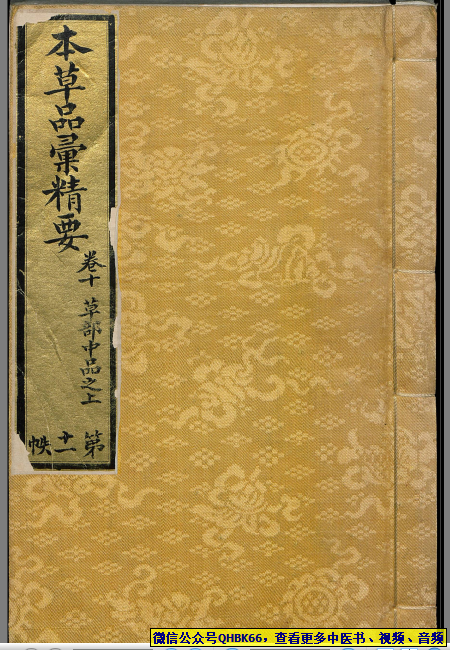 本草品彙精要
卷十 草部中品之上
第十一帙
微信公众号QHBK66，查看更多中医书、视频、音频